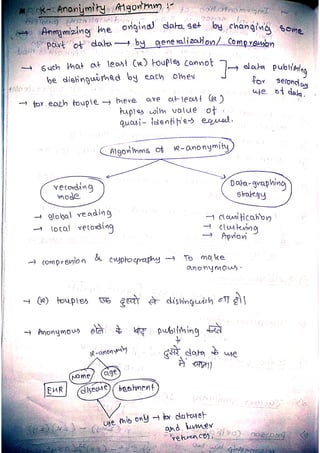 K- Anonimity Algorithm :-
→ Anonymizing the original data set by changing some
part of data → by generalization/ Compression
→ such that at least (k) touples cannot
be distinguished by each other
→ data publishing
for secondary
use of data.
→ for each touple → there are at least (k)
tuples with value of
quasi-identities equal.
Algorithms of k-anonymity
recording
mode
Data-graphing
strategy
→ global reading
→ local recording
→ classification
→ clustering
→ Apriori
→ compression & cryptography → To make
anonymous.
→ (k) touples एक दूसरे से distinguish ना हो।
→ Anonymous होने के बाद publishing करते
दूसरे data के use
में आता।
k-anonymity
Name
age
EHR
disease
treatment
use this only → for dataset
and further